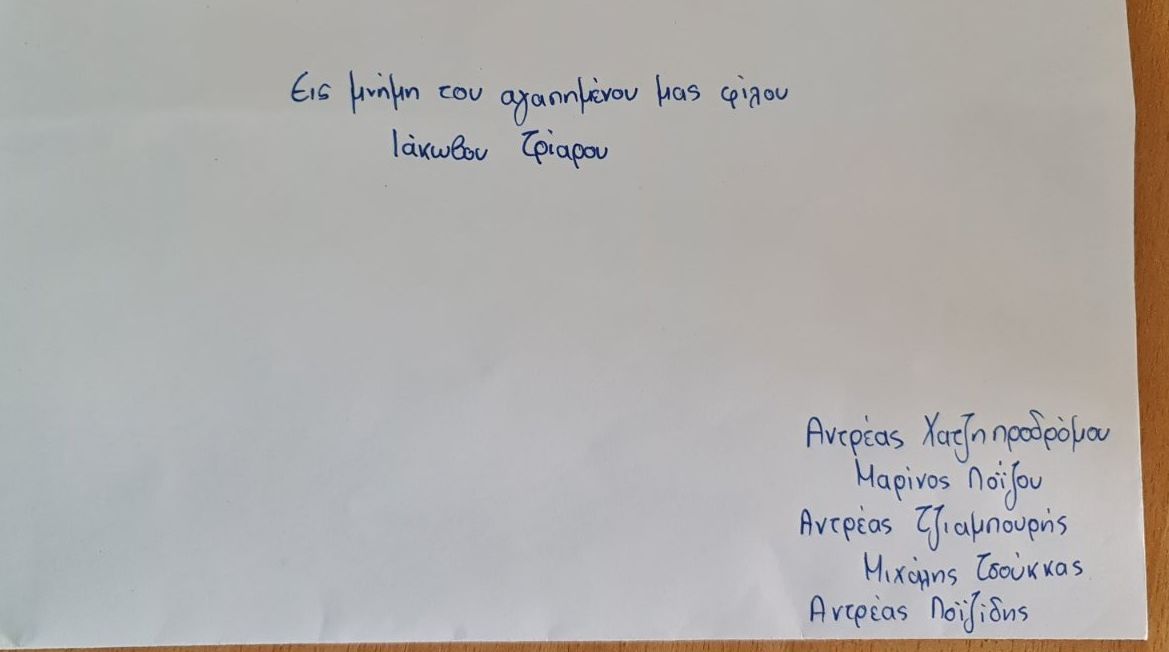 Εις μνήμη του αγαπημένου μας φίλου
Ιάκωβου Τρίαρου
Αντρέας Χατζηπροδρόμου
Μαρίνος Λοΐζου
Αντρέας Τζιαμπουρής
Μιχάλης Τσούκκας
Αντρέας Λοϊζίδης